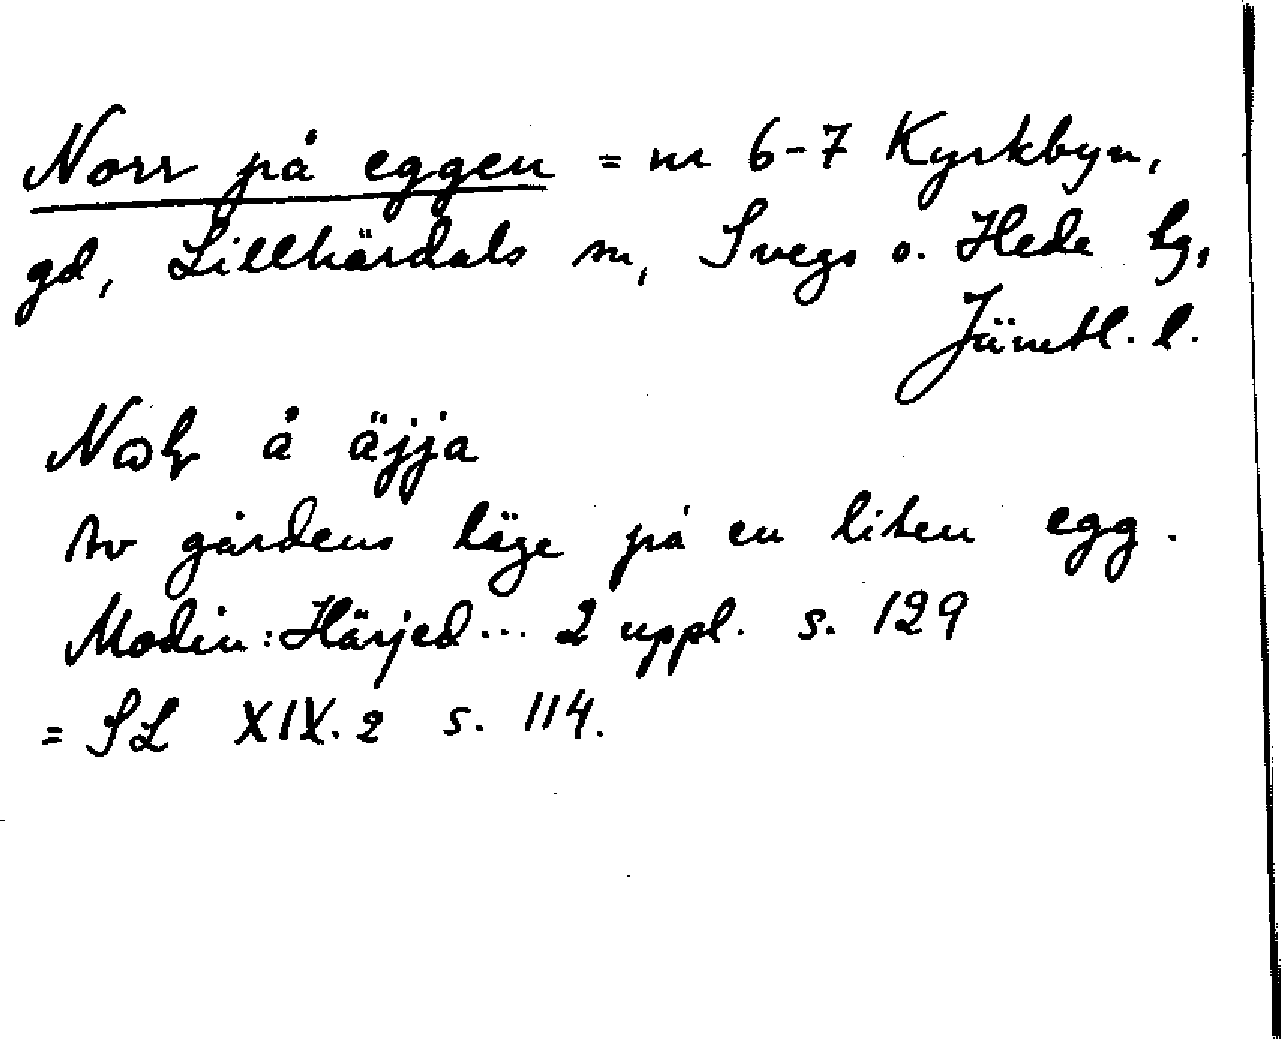 Norr på eggen = nr 6-7 Kyrkbyn,
gd, Lillhärdals sn, Svegs o. Hede tg,
Jämtl. l.
å äjja
Av gårdens läge på en liten egg.
Modin: Härjed... 2 uppl. s. 129
= SL XIX. 2 s. 114.